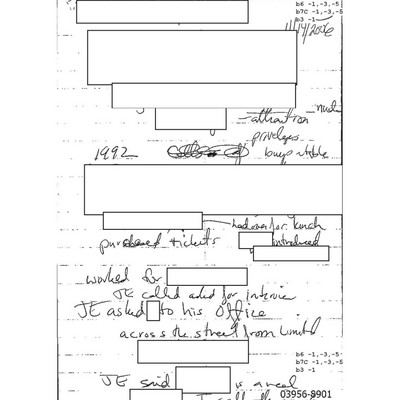 b6 -1,-3,-5
b7C -1,-3,-5
b3 -1
11/14/2006
-attraction
privileges
1992
had over for lunch
purchased tickets
introduced
worked for
JE called asked for interview
JE asked to his Office
across the street from Limited
b6 -1,-3,-5
b7C -1,-3,-5
b3 -1
JE said is a real
03956-8901